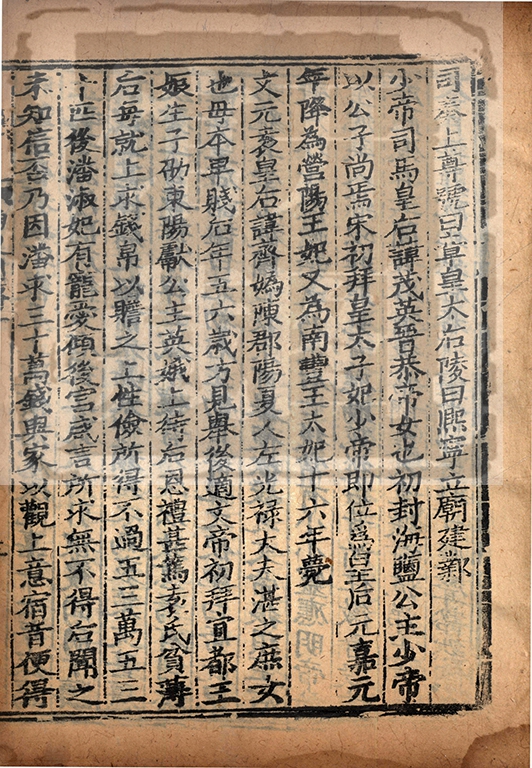 司奏上尊號曰章皇太后陵曰熙寧立廟建鄴
少帝司馬皇后諱茂英晉恭帝女也初封海鹽公主少帝
以公子尚焉宋初拜皇太子妃少帝即位爲皇后元嘉元
年降為營陽王妃又為南豐王太妃十六年薨
文元袁皇后諱齊嬀陳郡陽夏人左光祿大夫湛之庶女
也母本卑賤后年五六歲方見舉後適文帝初拜宜都王
妃生子劭東陽獻公主英娥上待后恩禮甚篤袁氏貧薄
后每就上求錢帛以贍之上性儉所得不過五三萬五三
十匹後潘淑妃有寵愛傾後宮咸言所求無不得后聞之
未知信否乃因潘求三十萬錢與家以觀上意宿音便得